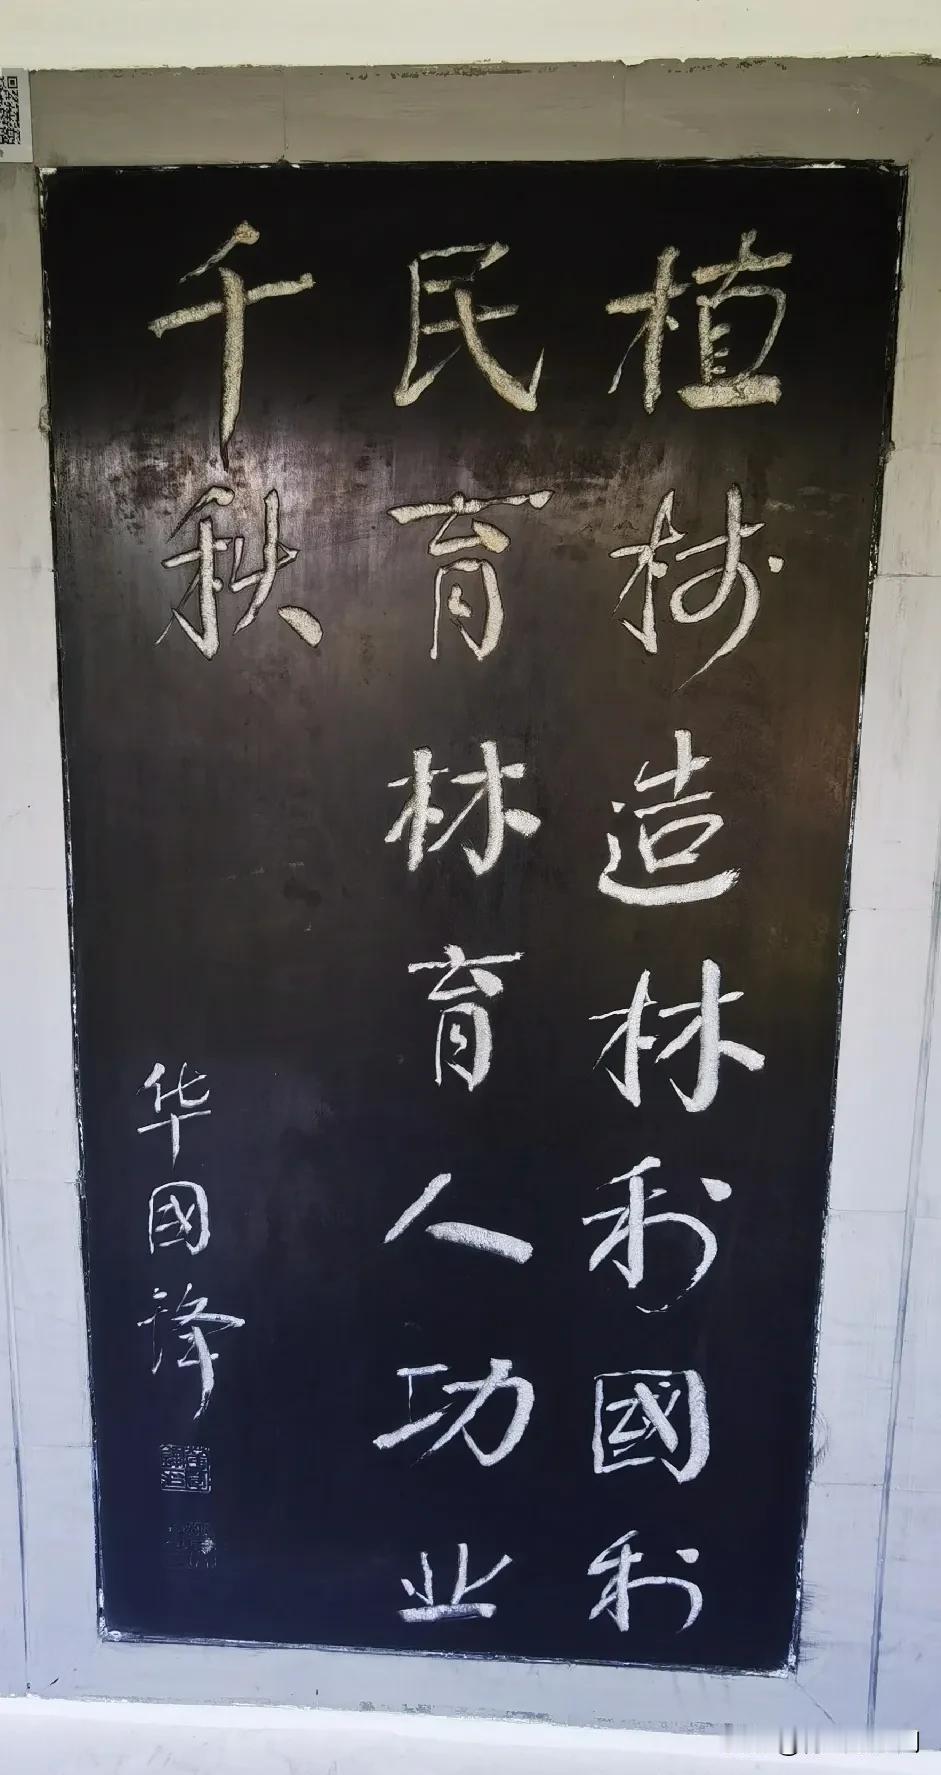 植树造林利國利
民育林育人功业
千秋
华國锋